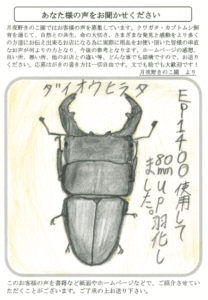 あなた様の声をお聞かせください
月夜野きのこ園ではお客様の声を募集しています。クワガタ・カブトムシ飼
育を通じて、自然との共生、命の大切さ、さまざまな発見と感動をより多く
の方法にお伝え出来るお店になる為に実際に商品をお使い頂いた皆様の率直
なお声が何よりの力となり、今後の参考となります。ホームページの感想、
良い所、悪い所、他のお店との違い等、どんな事でも結構ですので、お送り
ください。応募はがきの書き方は一切自由です。立でも絵でも大歓迎です！
月夜野きのこ園 より
ダイオウヒラタ
EP1400使用して
80mmUP羽化し
ました。
このお客様の声を書籍など紙面やホームページなどで、ご紹介させていた
だくことがございます。ご了承の上お送り下さい。